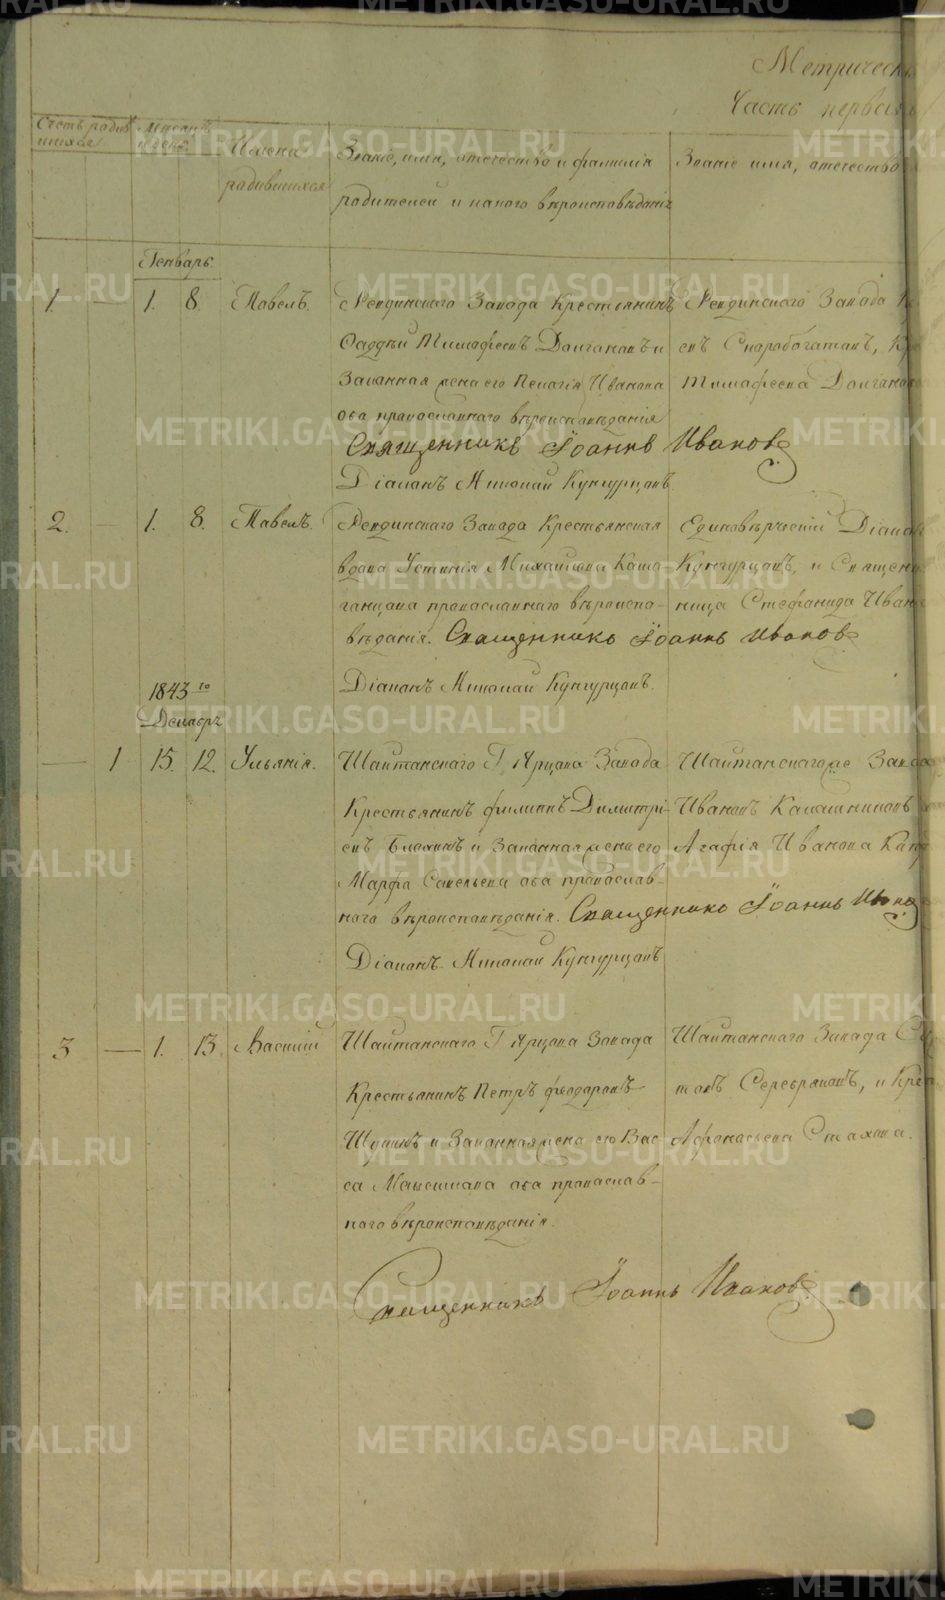 Метрическ
Часть первая
Счетъ родив
шихся
Месяцъ
и день
Имена
родившихся
Званіе, имя, отечество и фамилія
родителей и какого вѣроисповѣданія
Званіе имя, отечество
Генварь.
1. — 1. 8. Павелъ.
Ревдинскаго Завода Крестьянинъ
Фаддѣй Тимофеевъ Долгановъ и
Законная жена его Пелагія Иванова
оба православнаго вѣроисповѣданія
Священникъ Іоаннъ Ивановъ
Діаконъ Николай Кунгурцовъ
Ревдинскаго Завода
евъ Скоробогатовъ,
Тимофеева Долганова
2. — 1. 8. Павелъ.
Ревдинскаго Завода Крестьянская
вдова Устинія Михайлова
православнаго вѣроиспо-
вѣданія. Священникъ Іоаннъ Ивановъ
Діаконъ Николай Кунгурцовъ.
Единовѣрческій Діакон
Кунгурцовъ, и Священ
ница Стефанида Иван
1843го
Декабрь
— 1 15. 12. Ульянія.
Шайтанскаго Г. Ярцова Завода
Крестьянинъ Филиппъ Димитрі-
евъ и Законная жена его
Марфа Савельева оба православ-
наго вѣроисповѣданія. Священникъ Іоаннъ Ивано
Діаконъ Николай Кунгурцовъ
Шайтанскагоже Завода
Иванъ Калашниковъ
Агафія Иванова
3 — 1. 13. Василій
Шайтанскаго Г. Ярцова Завода
Крестьянинъ Петръ Феодоровъ
и Законная жена его Вас
са Максимова оба православ-
наго вѣроисповѣданія.
Священникъ Іоаннъ Ивановъ
Шайтанскаго Завода
Серебряковъ, и Кре
Афонасьева Стахова.
METRIKI.GASO-URAL.RU